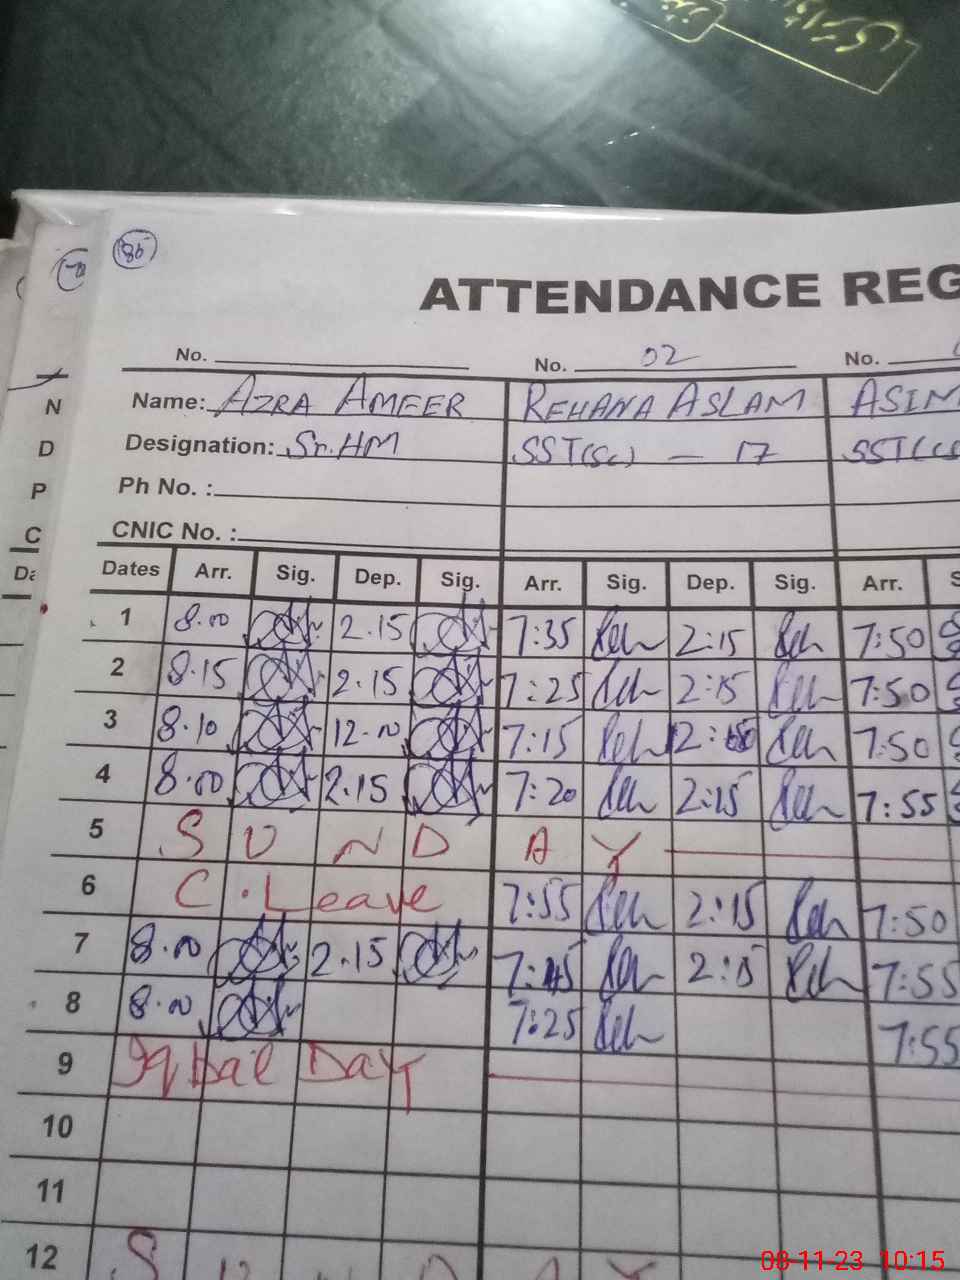 86
ATTENDANCE REG
No. No. 02 No.
N Name: AZRA AMEER REHANA ASLAM ASIM
D Designation: Sr. HM SST(SC) — 17 SST(
P Ph No. :
C CNIC No. :
Da Dates Arr. Sig. Dep. Sig. Arr. Sig. Dep. Sig. Arr. S
1 8.00 2.15 7:35 Reh 2:15 Reh 7:50
2 8.15 2.15 7:25 Reh 2:15 Reh 7:50
3 8.10 12.00 7:15 Reh Reh 7:50
4 8.00 2.15 7:20 Reh 2:15 Reh 7:55
5 SUNDAY
6 C. Leave 7:55 Reh 2:15 Reh 7:50
7 8.00 2.15 7:45 Reh 2:15 Reh 7:55
8 8.00 7:25 Reh 7:55
9 Iqbal Day
10
11
12 SUNDAY
08-11-23 10:15